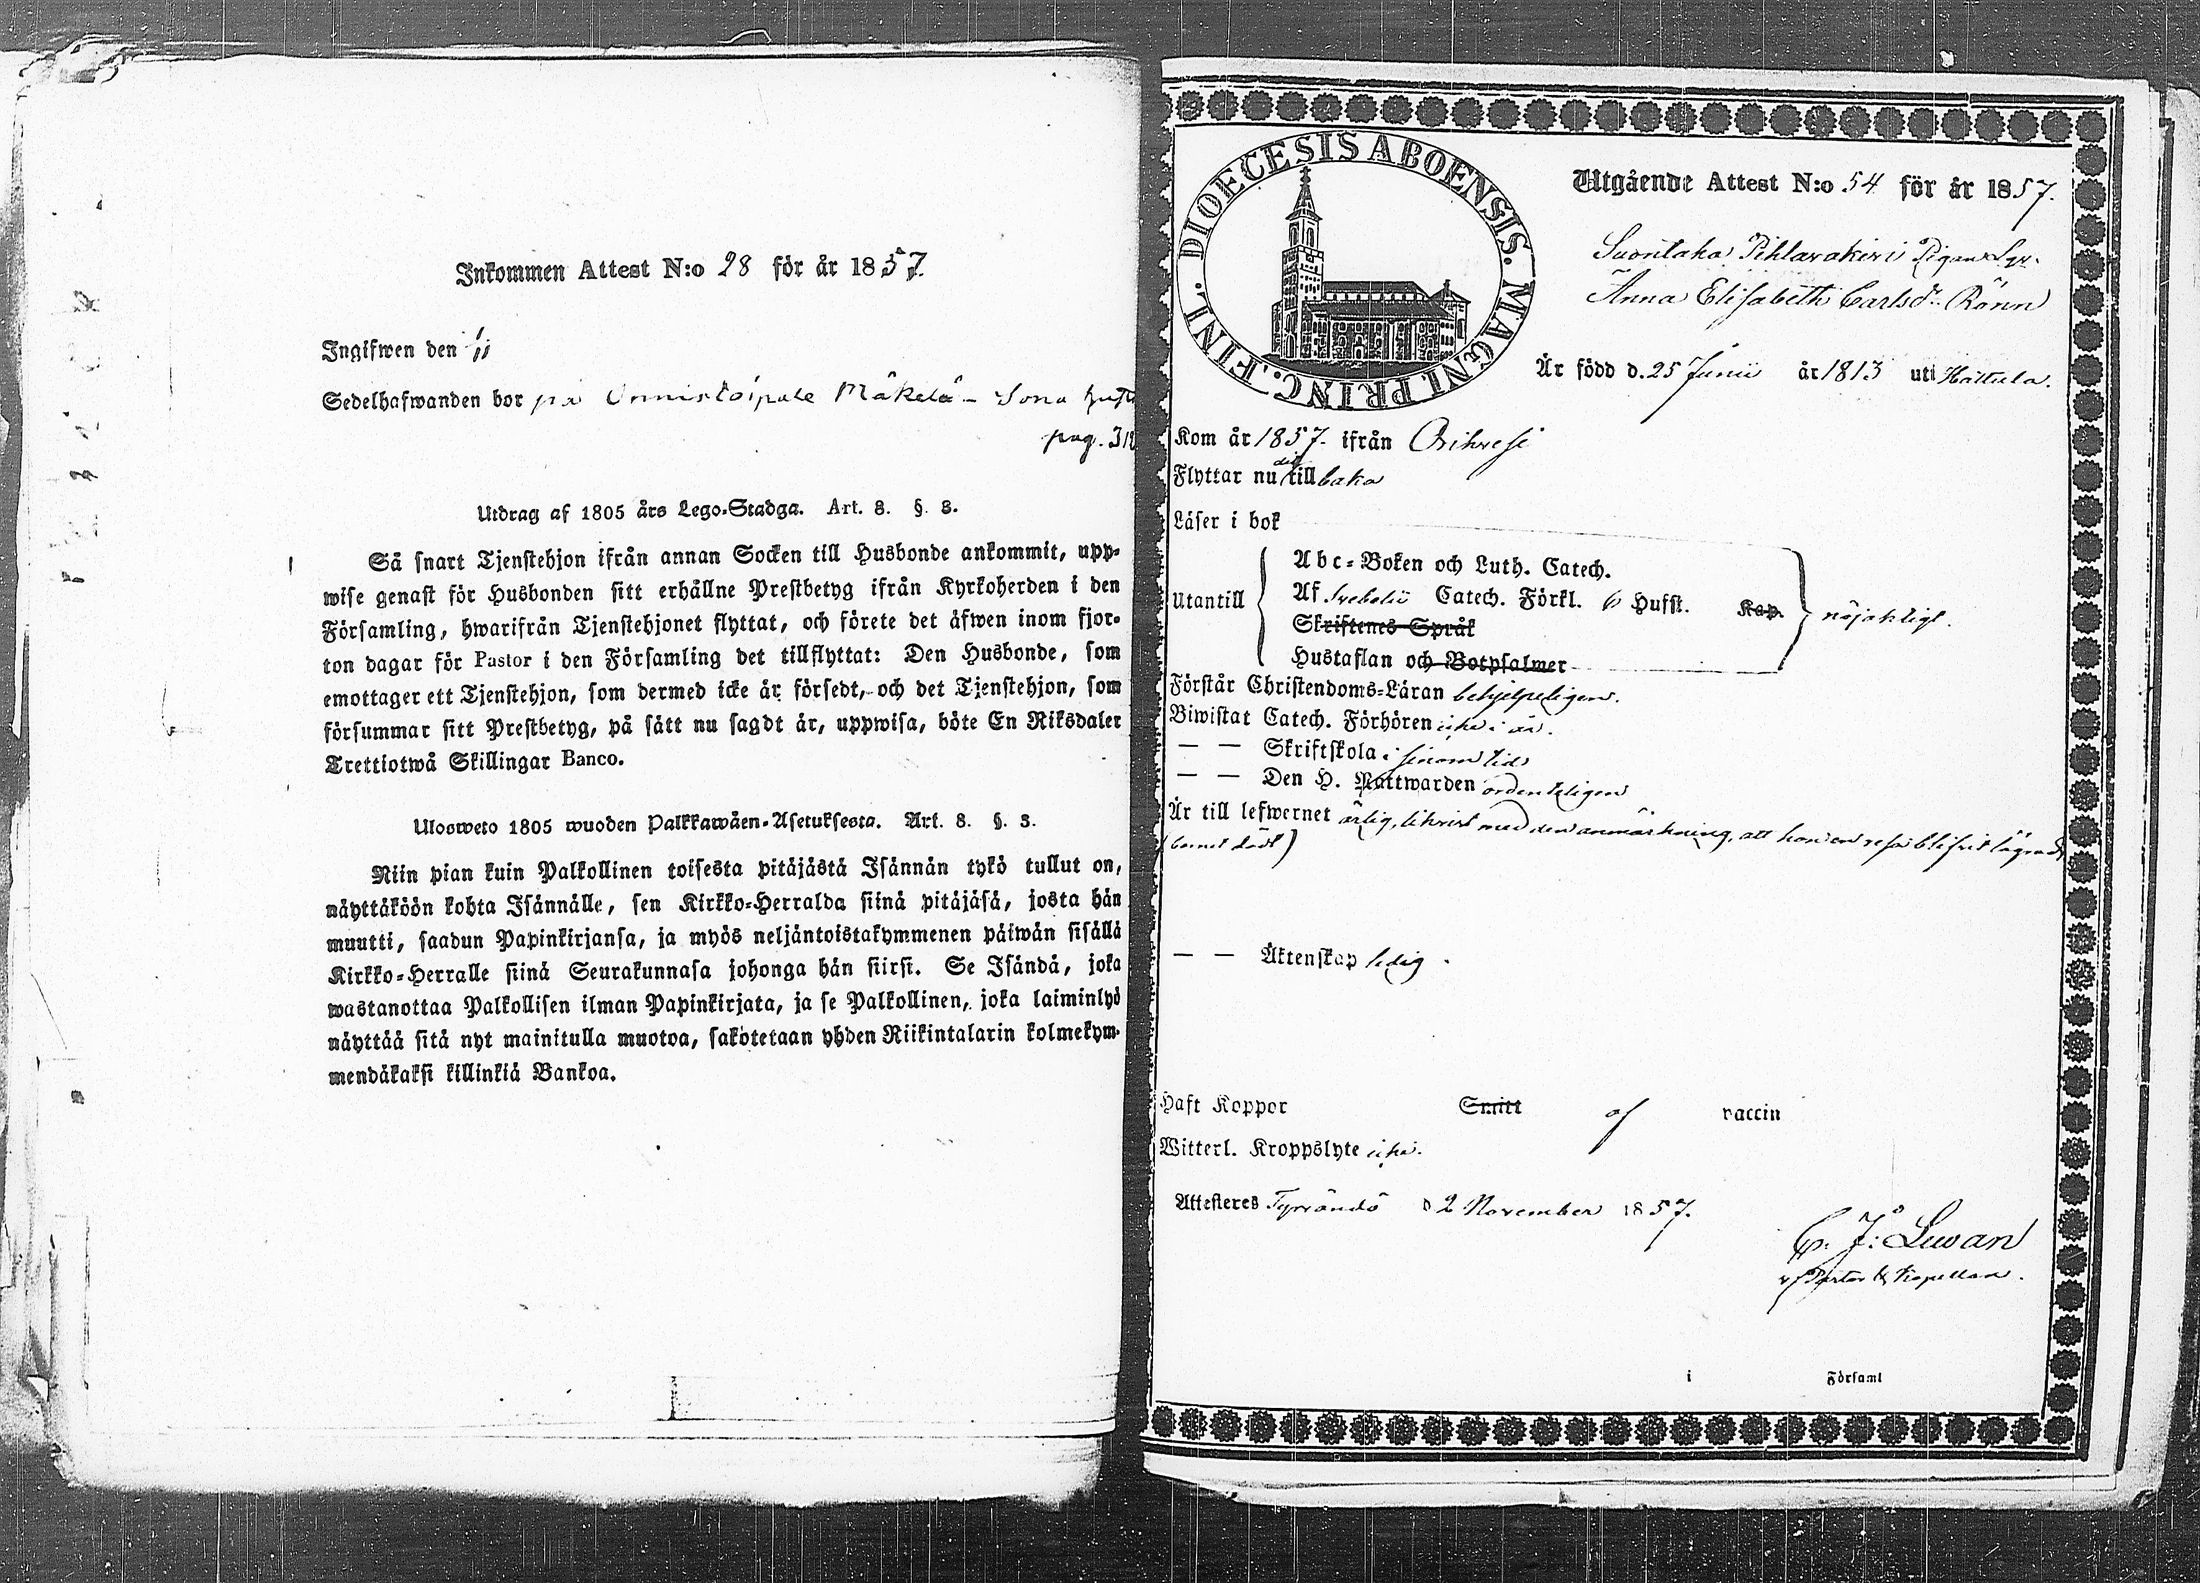 Inkommen Attest N:o 28 för år 1857.
Ingifwen den
Sedelhafwanden bor på Onnistaipale Mäkelä –
pag. 312
Utdrag af 1805 års Lego-Stadga. Art. 8. §. 3.
Så snart Tjenstehjon ifrån annan Socken till Husbonde ankommit, upp-
wise genast för Husbonden sitt erhållne Prestbetyg ifrån Kyrkoherden i den
Församling, hwarifrån Tjenstehjonet flyttat, och förete det äfwen inom fjor-
ton dagar för Pastor i den Församling det tillflyttat: Den Husbonde, som
emottager ett Tjenstehjon, som dermed icke är försedt, och det Tjenstehjon, som
försummar sitt Prestbetyg, på sätt nu sagdt är, uppwisa, böte En Riksdaler
Trettiotwå Skillingar Banco.
Ulosweto 1805 wuoden Palkkawäen-Asetuksesta. Art. 8. §. 3.
Niin pian kuin Palkollinen toisesta pitäjästä Isännän tykö tullut on,
näyttäköön kohta Isännälle, sen Kirkko-Herralda siinä pitäjäsä, josta hän
muutti, saadun Papinkirjansa, ja myös neljäntoistakymmenen päiwän sisällä
Kirkko-Herralle siinä Seurakunnasa johonga hän siirsi. Se Isändä, joka
wastanottaa Palkollisen ilman Papinkirjata, ja se Palkollinen, joka laiminlyö
näyttää sitä nyt mainitulla muotoa, sakotetaan yhden Riikintalarin kolmekym-
mendäkaksi killinkiä Bankoa.
DIOECESIS ABOENSIS. MAGNI. PRINC. FINL.
Utgående Attest N:o 54 för år 1857.
Suontaka Pihlavakiri Pigan
Anna Elisabeth Carlsdr Rönn
Är född d. 25 Junii år 1813 uti Hattula.
Kom år 1857. ifrån Orihvesi
Flyttar nu dit tillbaka
Läser i bok
Utantill
Abc-Boken och Luth. Catech.
Af Svebelii Catech. Förkl. 6 Hufst. Kap.
Skriftenes Språk
Hustaflan och Botpsalmer
nöjaktigt.
Förstår Christendoms-Läran behjelpeligen.
Biwistat Catech. Förhören icke i år.
— — Skriftskola i sinom tid
— — Den H. Nattwarden ordentligen
Är till lefwernet ärlig, likväl med den anmärkning, att hon en resa blifvit lägrad
(barnet dödt)
— — Äktenskap ledig.
Haft Koppor Smitt af vaccin
Witterl. Kroppslyte icke.
Attesteres Tyrväntö d 2 November 1857.
C. J: Luvan
v/Pastor & Kapellan.
i Församl